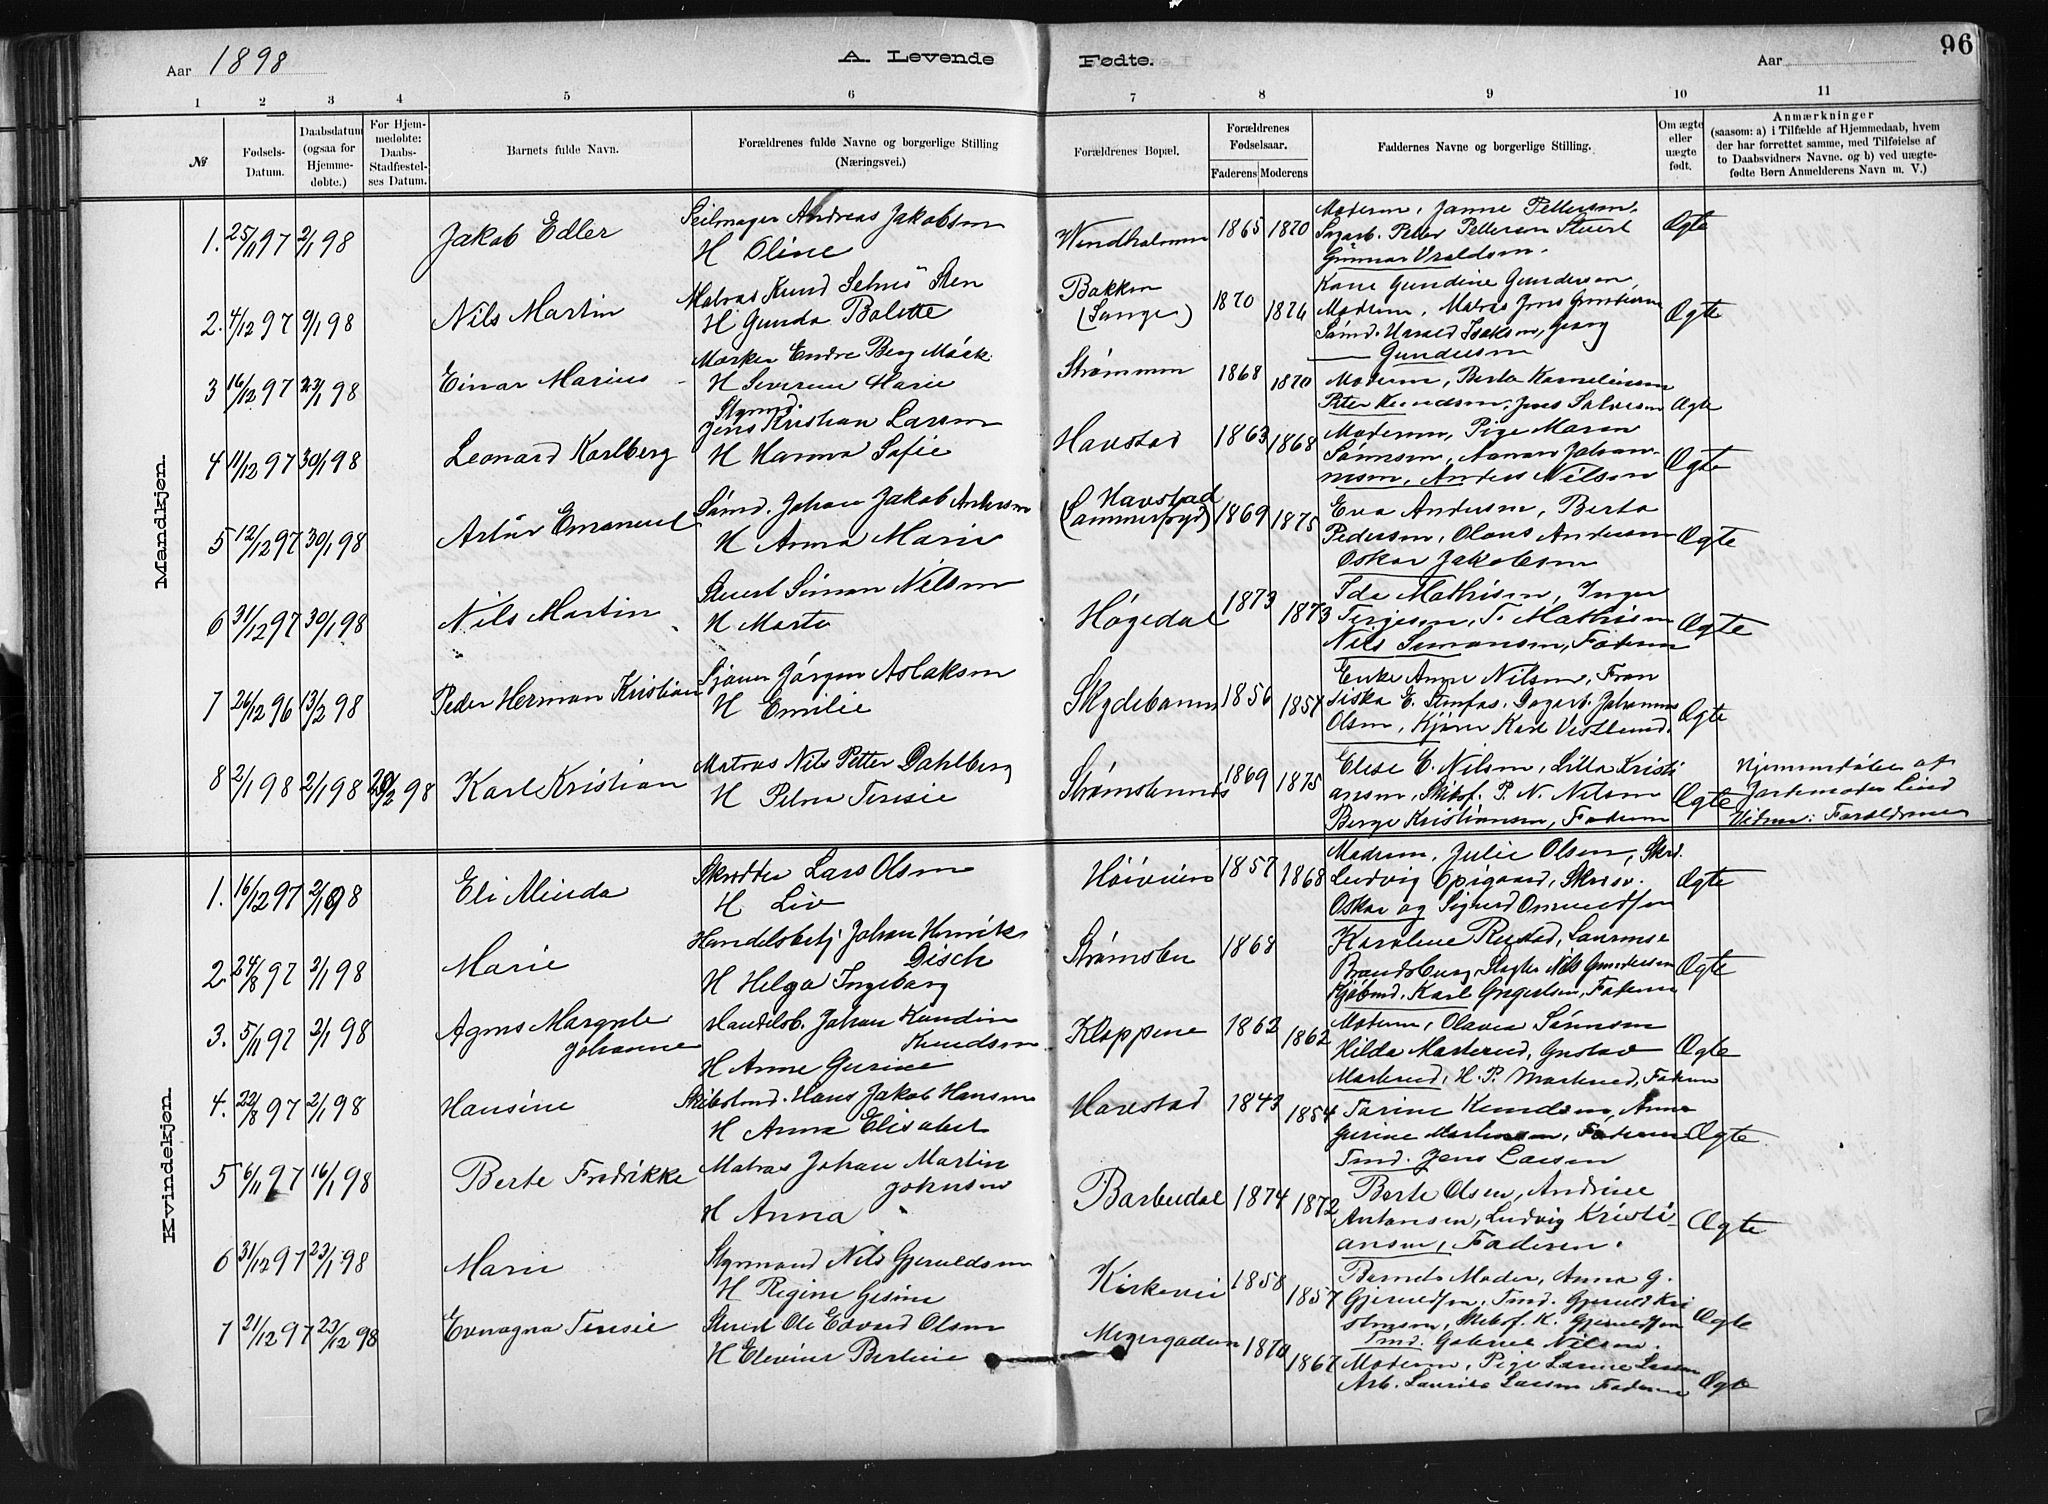 Aar 1898
A. Levende
Fødte.
Aar
96
1 2 3 4 5 6 7 8 9 10 11
№
Fødsels-
Datum.
Daabsdatum
(ogsaa for
Hjemme-
døbte.)
For Hjem-
medøbte:
Daabs-
Stadfæstel-
ses Datum.
Barnets fulde Navn.
Forældrenes fulde Navne og borgerlige Stilling
(Næringsvei.)
Forældrenes Bopæl.
Forældrenes
Fødselsaar.
Faderens Moderens
Faddernes Navne og borgerlige Stilling.
Om ægte
eller
uægte
født.
Anmærkninger
(saasom: a) i Tilfælde af Hjemmedaab, hvem
der har forrettet samme, med Tilføielse af
to Daabsvidners Navne. og b) ved uægte-
fødte Børn Anmelderens Navn m. V.)
Mandkjøn.
1. 25/11 97 2/1 98 Jakob Edler
Seilmager Andreas Jakobsen
H Oline
1865 1870
Moderen, Janne Pettersen,
Peter Pettersen Stuert
Gunnar
Ægte
2. 4/12 97 9/1 98 Nils Martin
Matros Knud
H Gunda Bolette
Bakken
(Songe)
1870 1874
Kone Gundine Gundersen,
Moderen, Matros Jens
Sømd. Harald Isaksen, Georg
Gundersen
Ægte
3 16/12 97 23/1 98 Einar Marius
H Severine Marie
Strømmen
1868 1870
Moderen, Berta Korneliussen
Peter Knudsen, Jens Salvesen
Ægte
4 11/12 97 30/1 98 Leonard Karlberg
Styrmd.
Jens Kristian Larsen
H Hanna Sofie
Havstad
1863 1868
Moderen, Pige Maren
Sørensen, Aanon Johan-
nesen, Anders Nilsen
Ægte
5 12/12 97 30/1 98 Artur Emanuel
Sømd. Johan Jakob Andersen
H Anna Marie
Havstad
1869 1875
Eva Andersen, Berta
Pedersen, Olaus Andersen
Oskar Jakobsen
Ægte
6 31/12 97 30/1 98 Nils Martin
Stuert Simon Nilsen
H Marte
Høgedal
1873 1873
Ida Mathisen, Inger
Terjesen, T. Mathisen
Nils Simonsen, Faderen
Ægte
7 26/12 96 13/2 98 Peder Herman Kristian
Jørgen Aslaksen
H Emilie
Skydebanen
1856 1857
Enke Anne Nilsen, Fran
siska E. Dagarb. Johannes
Olsen, Kjører Karl Vestlund.
Ægte
8 2/1 98 2/1 98 20/2 98 Karl Kristian
Matros Nils Petter Dahlberg
H Petra Terisie
1869 1875
Elise E. Nilsen, Lilla Kristi
ansen, Skibsf. P. N. Nilsen
Berge Kristiansen, Faderen
Ægte
Hjemmedøbt af
Jordemoder Lind
Vidner: Forældrene
Kvindekjøn.
1. 16/12 97 2/1 98 Eli Alinda
Skrædder Lars Olsen
H Liv
1857 1868
Moderen, Julie Olsen, Skrd.
Ludvig
Oskar og Sigurd Omundsen
Ægte
2. 24/8 97 2/1 98 Marie
Handelsbetj Johan Henrik
Disch
H Helga Ingeborg
Strømsbu
1868
Karoline
Slagter Nils Gundersen
Kjøbmd. Karl Faderen
Ægte
3. 5/11 97 2/1 98 Agnes Margrete
Johanne
Handelsb. Johan Kandin
Knudsen
H Anne Gurine
Kloppene
1862 1862
Moderen, Olavia Sørensen
Hilda Marterud, Gustav
Marterud, H. P. Marterud, Faderen
Ægte
4. 22/8 97 2/1 98 Hansine
Hans Jakob Hansen
H Anna Elisabet
Havstad
1843 1854
Torine Knudsen, Anne
Gurine Faderen
Tmd. Jens Larsen
Ægte
5 6/11 97 16/1 98 Berte Fredrikke
Matros Johan Martin
Johnsen
H Anna
Barbudal
1874 1872
Berte Olsen, Andrine
Antonsen, Ludvig Kristi-
ansen, Faderen.
Ægte
6 31/12 97 23/1 98 Marie
Styrmand Nils Gjeruldsen
H Regine Gesine
Kirkevei
1858 1857
Barnets Moder, Anna G.
Gjeruldsen, Tmd. Gjeruld Kri
stensen, Skibsf. K. Gjeruldsen
Tmd. Gabriel Nilsen.
Ægte
7 21/12 97 23/12 98 Terisie
Stuert Ole Edvard Olsen
H Elevine Bertine
1870 1867
Moderen, Pige Larsen
Arb. Laurits Larsen Faderen
Ægte